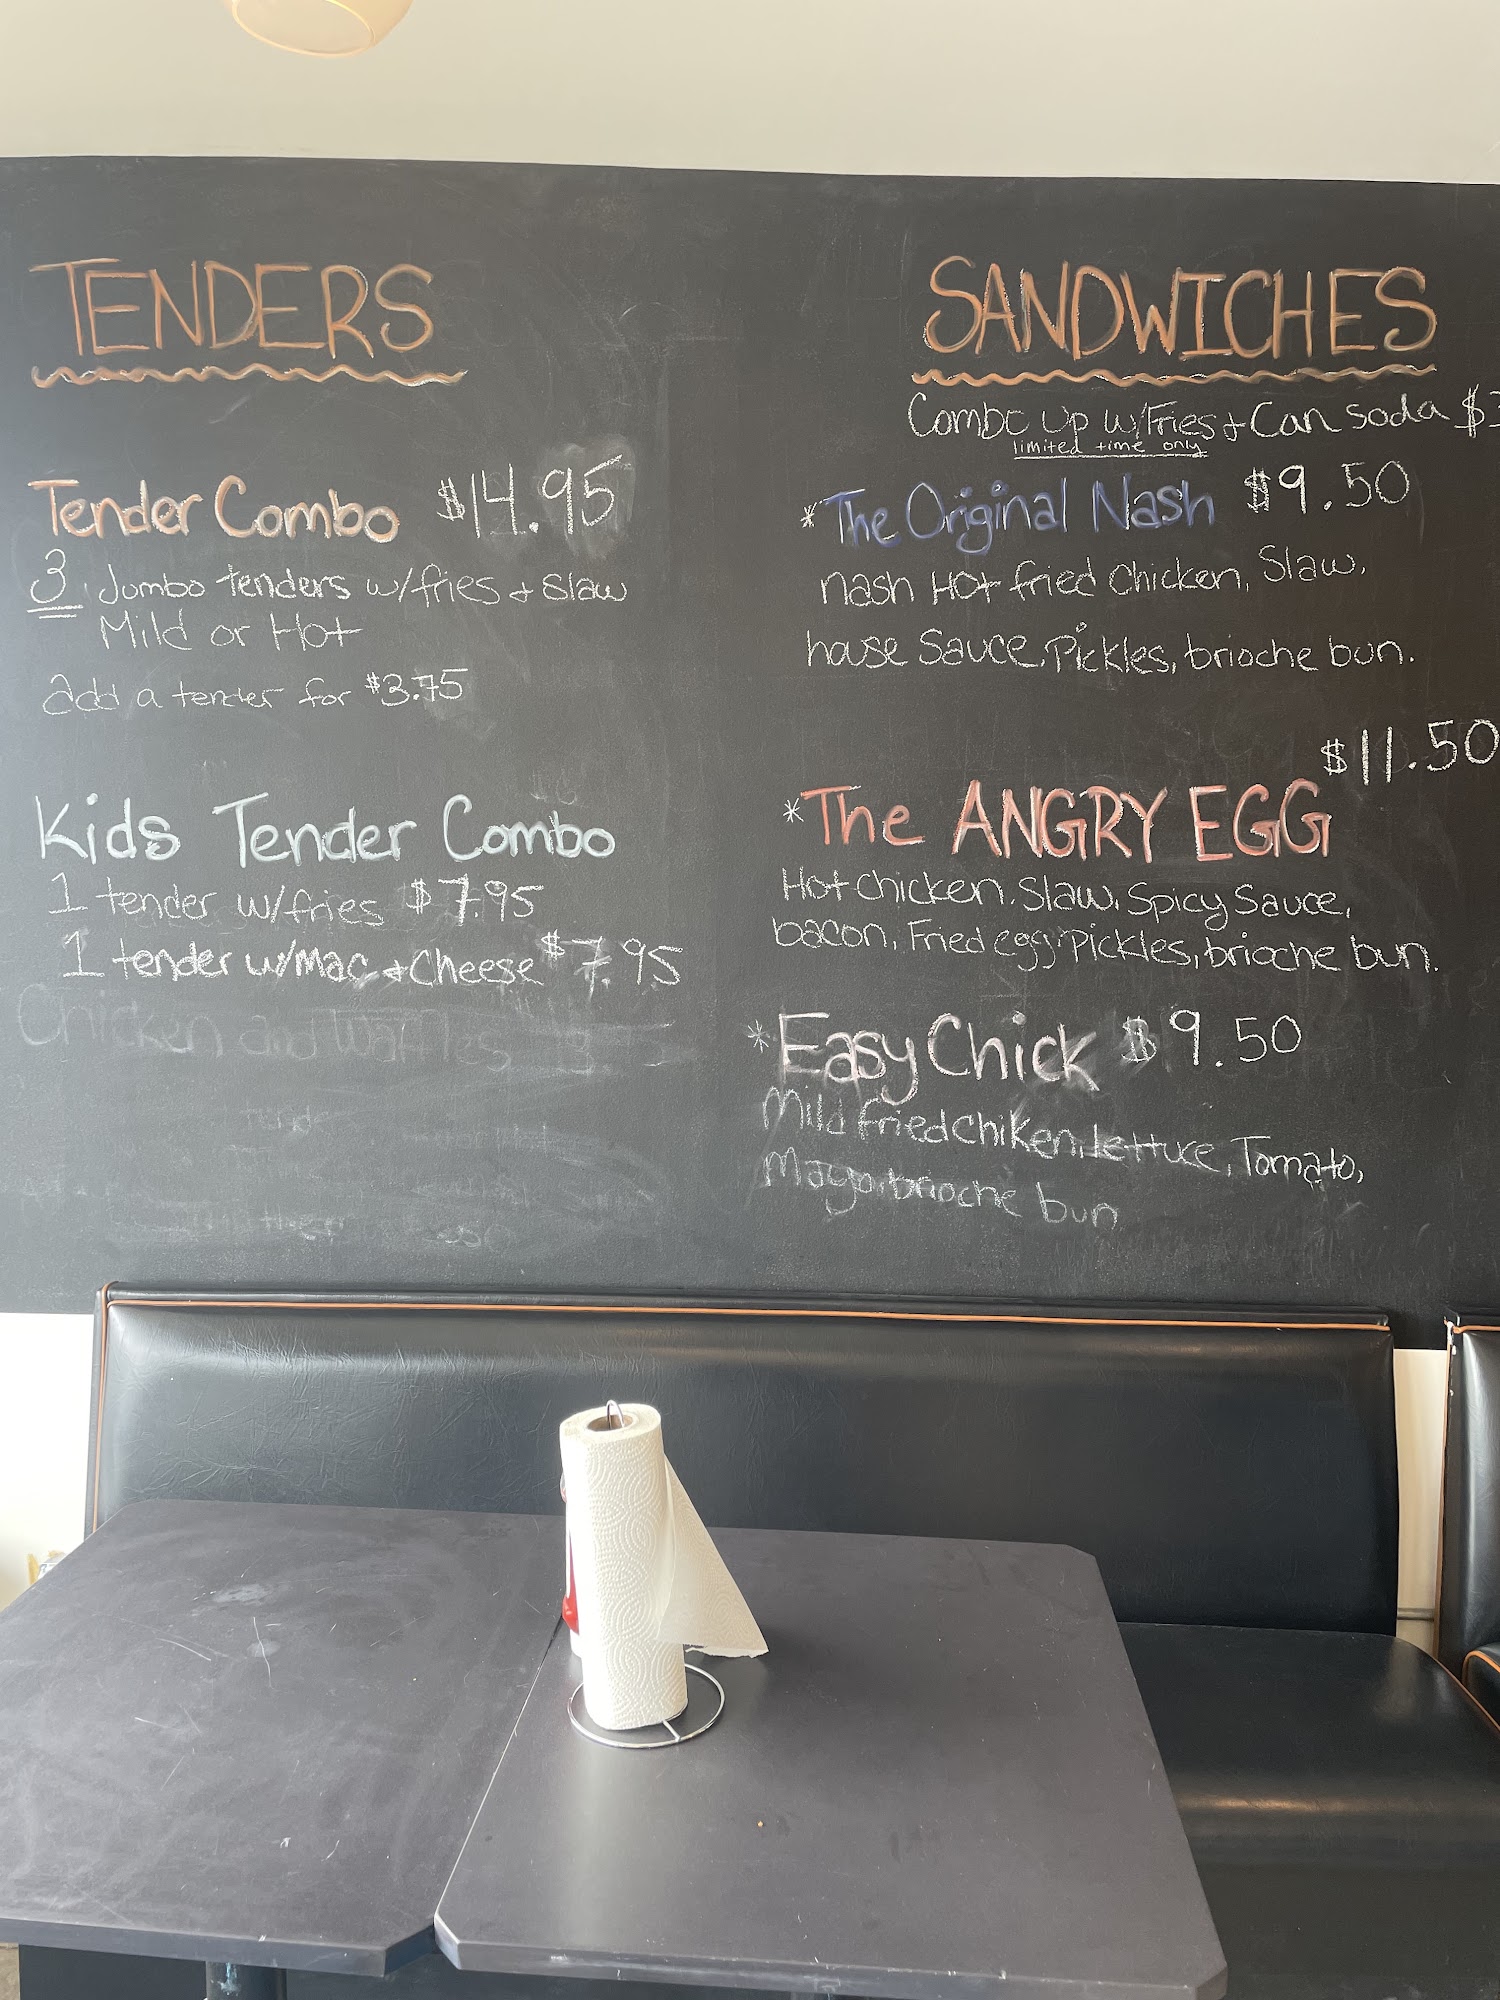 TENDERS
Tender Combo $14.95
3 Jumbo tenders w/fries + Slaw
Mild or Hot
add a tender for $3.75
Kids Tender Combo
1 tender w/fries $7.95
1 tender w/Mac + Cheese $7.95
Chicken and Waffles
SANDWICHES
Combo Up w/Fries + Can Soda $3
limited time only
*The Original Nash $9.50
Nash Hot fried Chicken, Slaw,
house Sauce, Pickles, brioche bun.
$11.50
*The ANGRY EGG
Hot Chicken, Slaw, Spicy Sauce,
bacon, Fried egg, Pickles, brioche bun.
*Easy Chick $9.50
Mild fried chiken, lettuce, Tomato,
Mayo, brioche bun